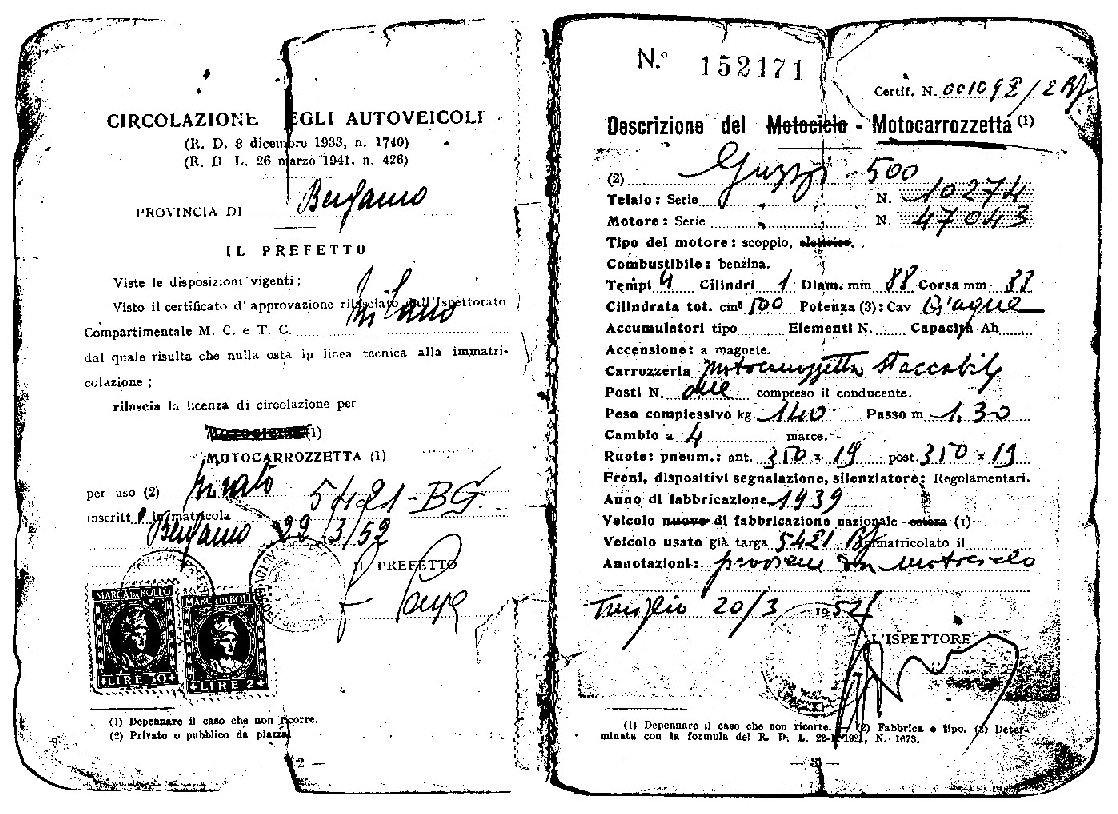 CIRCOLAZIONE EGLI AUTOVEICOLI
(R. D. 8 dicembre 1933, n. 1740)
(R. D. L. 26 marzo 1941, n. 426)
PROVINCIA DI Bergamo
IL PREFETTO
Viste le disposizioni vigenti;
Visto il certificato d'approvazione rilasciato dall'Ispettorato
Compartimentale M. C. e T. C. Milano
dal quale risulta che nulla osta in linea tecnica alla immatri-
colazione;
rilascia la licenza di circolazione per
(1)
MOTOCARROZZETTA (1)
per uso (2) privato 5421-BG.
inscritt in matricola
Bergamo 29/3/52
IL PREFETTO
MARCA DA BOLLO MARCA DA BOLLO
LIRE LIRE
(1) Depennare il caso che non ricorre.
(2) Privato o pubblico da piazza.
2 -
N.° 152171
Certif. N.
Descrizione del Motociclo - Motocarrozzetta (1)
(2) Guzzi - 500
Telaio: Serie N. 10274
Motore: Serie N. 47043
Tipo del motore: scoppio, elettrico.
Combustibile: benzina.
Tempi 4 Cilindri 1 Diam. mm 88 Corsa mm
Cilindrata tot. cm³ 500 Potenza (3): Cav
Accumulatori tipo Elementi N. Capacità Ah
Accensione: a magnete.
Carrozzeria Motocarrozzetta staccabile
Posti N. due compreso il conducente.
Peso complessivo kg 140 Passo m 1.30
Cambio a 4 marce.
Ruote: pneum.: ant. 350 x 19 post. 350 x 19
Freni, dispositivi segnalazione, silenziatore: Regolamentari.
Anno di fabbricazione 1939
Veicolo nuovo di fabbricazione nazionale - estera (1)
Veicolo usato già targa 5421 BG immatricolato il
Annotazioni: proviene da motociclo
Treviglio 20/3 1952
L'ISPETTORE
(1) Depennare il caso che non ricorre. (2) Fabbrica e tipo. (3) Deter-
minata con la formula del R. D. L. 1921, N. 1673.
- 3 -